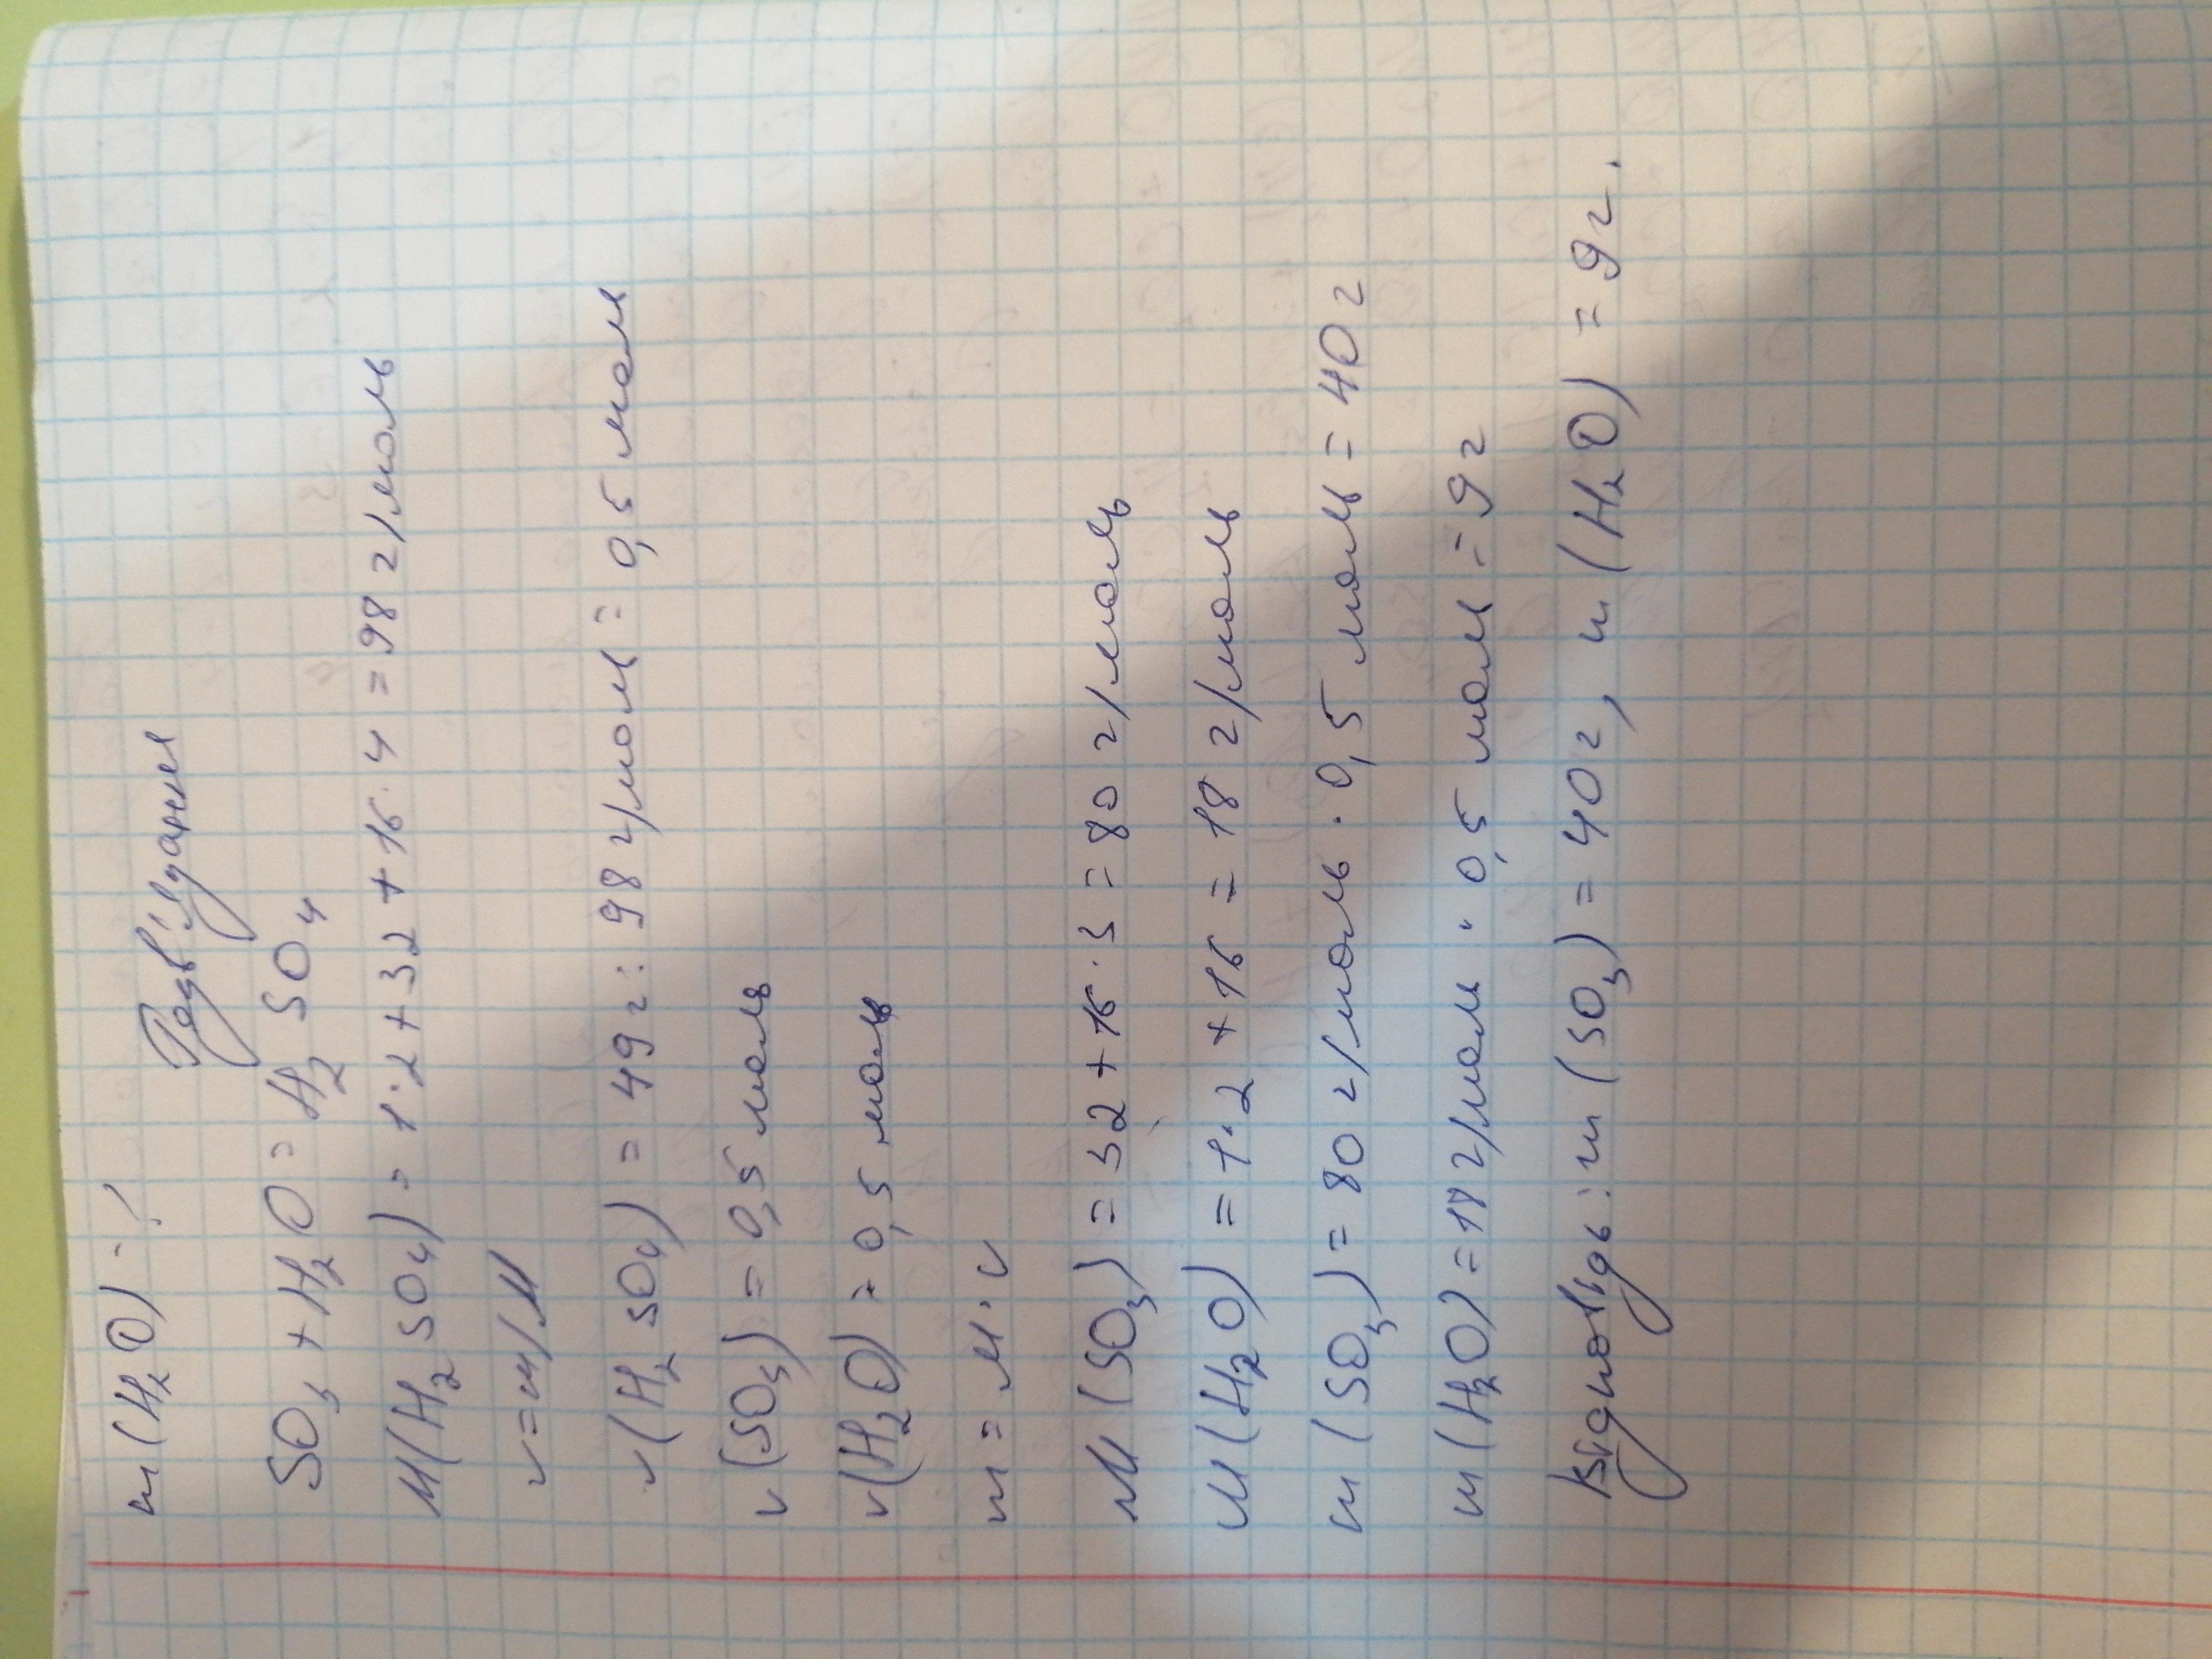 m(H₂O) - ?
Розв'язання
SO₃ + H₂O = H₂SO₄
M(H₂SO₄) = 1·2+32+16·4=98 г/моль
ν=m/M
ν(H₂SO₄) = 49 г : 98 г/моль = 0,5 моль
ν(SO₃) = 0,5 моль
ν(H₂O) = 0,5 моль
m = M·ν
M(SO₃) = 32+16·3 = 80 г/моль
M(H₂O) = 1·2+16 = 18 г/моль
m(SO₃) = 80 г/моль · 0,5 моль = 40 г
m(H₂O) = 18 г/моль · 0,5 моль = 9 г
Відповідь: m(SO₃) = 40 г, m(H₂O) = 9 г.